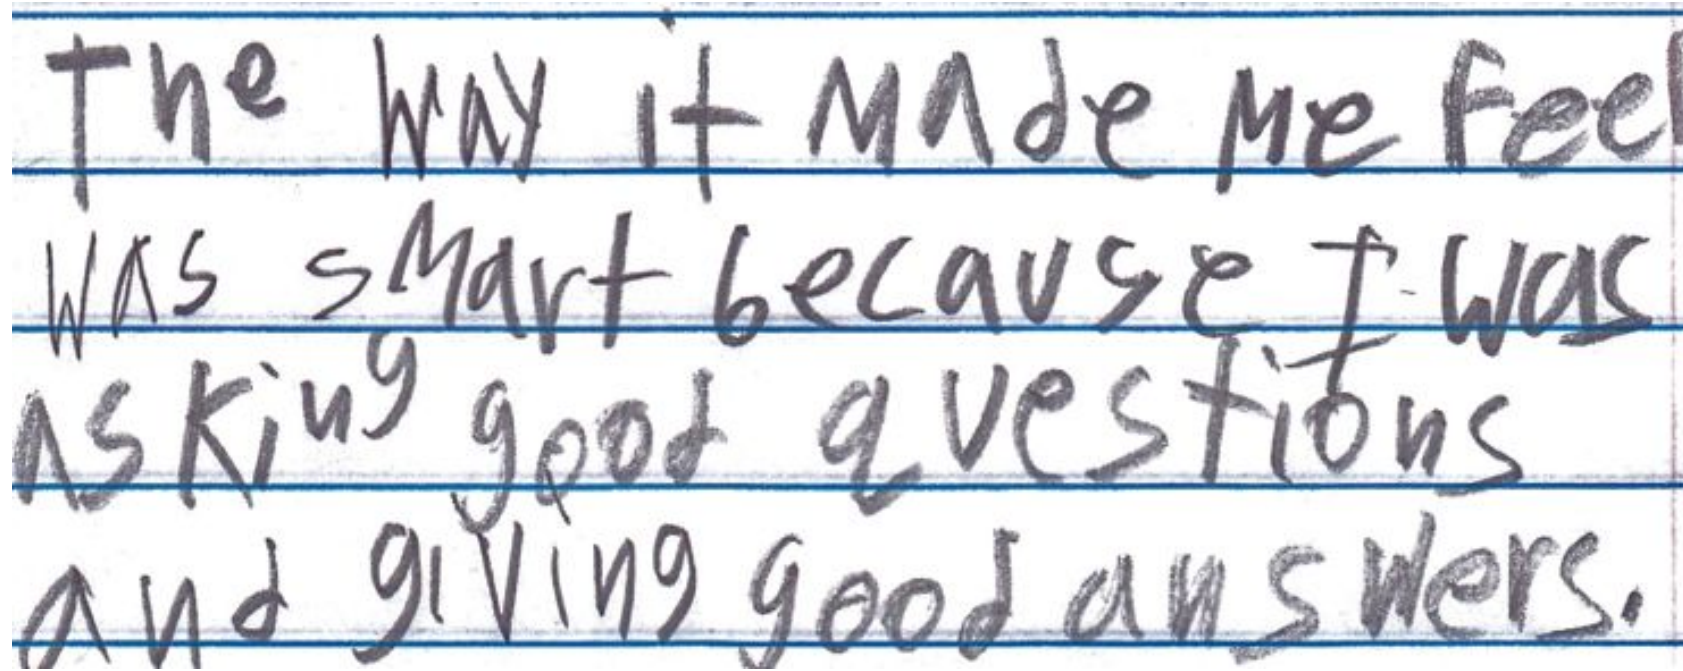 The way it made me feel
was smart because I was
asking good questions
and giving good answers.